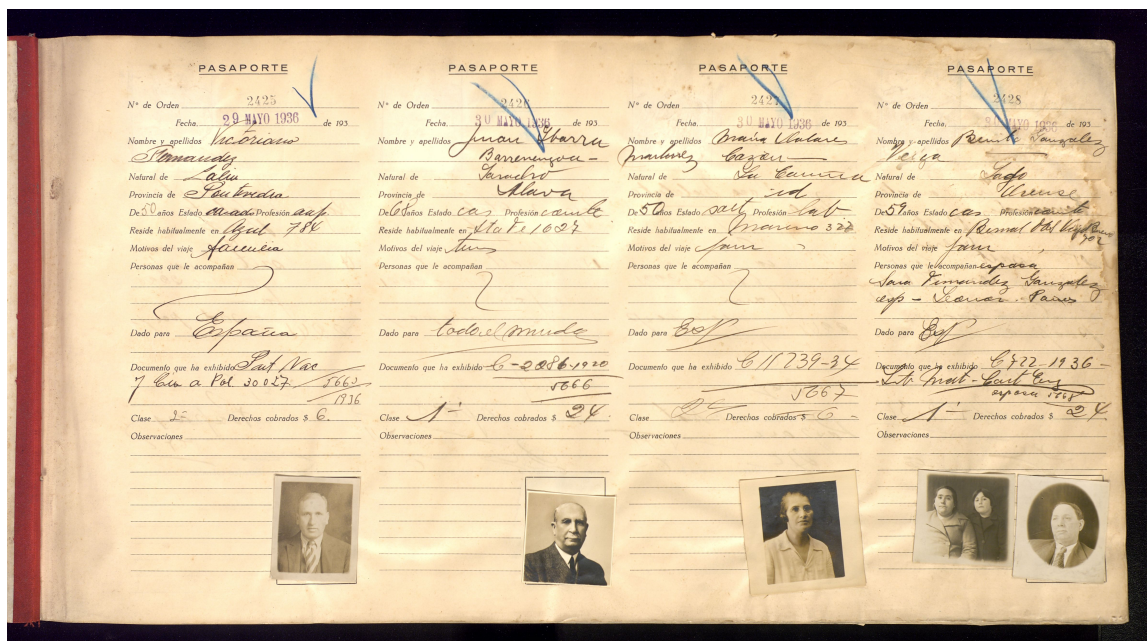 PASAPORTE
Nº de Orden 2425
Fecha. 29 MAYO 1936 de 193
Nombre y apellidos Victoriano
Fernandez
Natural de Lalin
Provincia de Pontevedra
De 50 años Estado casado Profesión
Reside habitualmente en Azul 784
Motivos del viaje familia
Personas que le acompañan
Dado para España
Documento que ha exhibido Part Nac
y Cer a Pol 30027 5663
1936
Clase 2ª Derechos cobrados $ 6
Observaciones
PASAPORTE
Nº de Orden 2426
Fecha. 30 MAYO 1936 de 193
Nombre y apellidos Juan Ibarra
Natural de Saracho
Provincia de Alava
De 68 años Estado cas Profesión comte
Reside habitualmente en Sta Fe 1627
Motivos del viaje tur
Personas que le acompañan
Dado para todo el mundo
Documento que ha exhibido C-2086-1920
5666
Clase 1ª Derechos cobrados $ 24
Observaciones
PASAPORTE
Nº de Orden 2427
Fecha. 30 MAYO 1936 de 193
Nombre y apellidos Maria Dolores
Martinez
Natural de La Coruña
Provincia de id
De 50 años Estado solt Profesión lab
Reside habitualmente en Moreno 322
Motivos del viaje fam
Personas que le acompañan
Dado para Esp
Documento que ha exhibido C 11739-34
5667
Clase 2ª Derechos cobrados $ 6
Observaciones
PASAPORTE
Nº de Orden 2428
Fecha. 30 MAYO 1936 de 193
Nombre y apellidos Benito Gonzalez
Natural de
Provincia de Orense
De 59 años Estado cas Profesión comte
Reside habitualmente en
Motivos del viaje fam
Personas que le acompañan esposa
Sara Fernandez Gonzalez
Dado para Esp
Documento que ha exhibido C 722-1936-
Lib Mat-
esposa 5668
Clase 1ª Derechos cobrados $ 24
Observaciones